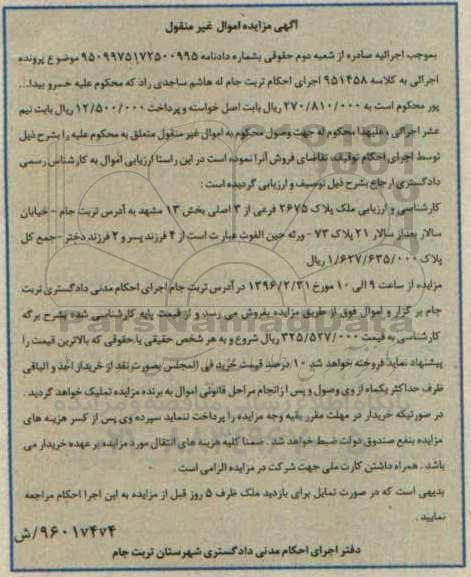 آگهی مزایده اموال غیر منقول
بموجب اجرائیه صادره از شعبه دوم حقوقی بشماره دادنامه ۹۵۰۹۹۷۵۱۷۲۵۰۰۹۹۵ موضوع پرونده
اجرائی به کلاسه ۹۵۱۴۵۸ اجرای احکام تربت جام له هاشم ساجدی راد که محکوم علیه خسرو بیدا...
پور محکوم است به ۲۷۰/۸۱۰/۰۰۰ ریال بابت اصل خواسته و پرداخت ۱۲/۵۰۰/۰۰۰ ریال بابت نیم
عشر اجرائی ، علیهذا محکوم له جهت وصول محکوم به اموال غیر منقول متعلق به محکوم علیه را بشرح ذیل
توسط اجرای احکام توقیف، تقاضای فروش آنرا نموده است در این راستا ارزیابی اموال به کارشناس رسمی
دادگستری ارجاع بشرح ذیل توصیف و ارزیابی گردیده است :
کارشناسی و ارزیابی ملک پلاک ۲۶۷۵ فرعی از ۳ اصلی بخش ۱۳ مشهد به آدرس تربت جام - خیابان
سالار بعداز سالار ۲۱ پلاک ۷۳ - ورثه حین الفوت عبارت است از ۴ فرزند پسر و ۲ فرزند دختر - جمع کل
پلاک ۱/۶۲۷/۶۳۵/۰۰۰ ریال
مزایده از ساعت ۹ الی ۱۰ مورخ ۱۳۹۶/۲/۳۱ در آدرس تربت جام اجرای احکام مدنی دادگستری تربت
جام بر گزار و اموال فوق از طریق مزایده بفروش می رسد و از قیمت پایه کارشناسی شده بشرح برگه
کارشناسی به قیمت ۳۲۵/۵۲۷/۰۰۰ ریال شروع و به هر شخص حقیقی یا حقوقی که بالاترین قیمت را
پیشنهاد نماید فروخته خواهد شد ۱۰ درصد قیمت خرید فی المجلس بصورت نقد از خریدار اخذ و الباقی
ظرف حداکثر یکماه از وی وصول و پس از انجام مراحل قانونی اموال به برنده مزایده تملیک خواهد گردید .
در صورتیکه خریدار در مهلت مقرر بقیه وجه مزایده را پرداخت ننماید سپرده وی پس از کسر هزینه های
مزایده بنفع صندوق دولت ضبط خواهد شد . ضمنا کلیه هزینه های انتقال مورد مزایده بر عهده خریدار می
باشد . همراه داشتن کارت ملی جهت شرکت در مزایده الزامی است .
بدیهی است که در صورت تمایل برای بازدید ملک ظرف ۵ روز قبل از مزایده به این اجرا احکام مراجعه
نمایید .
۹۶۰۱۷۴۷۴/ش
دفتر اجرای احکام مدنی دادگستری شهرستان تربت جام
ParsNamadData